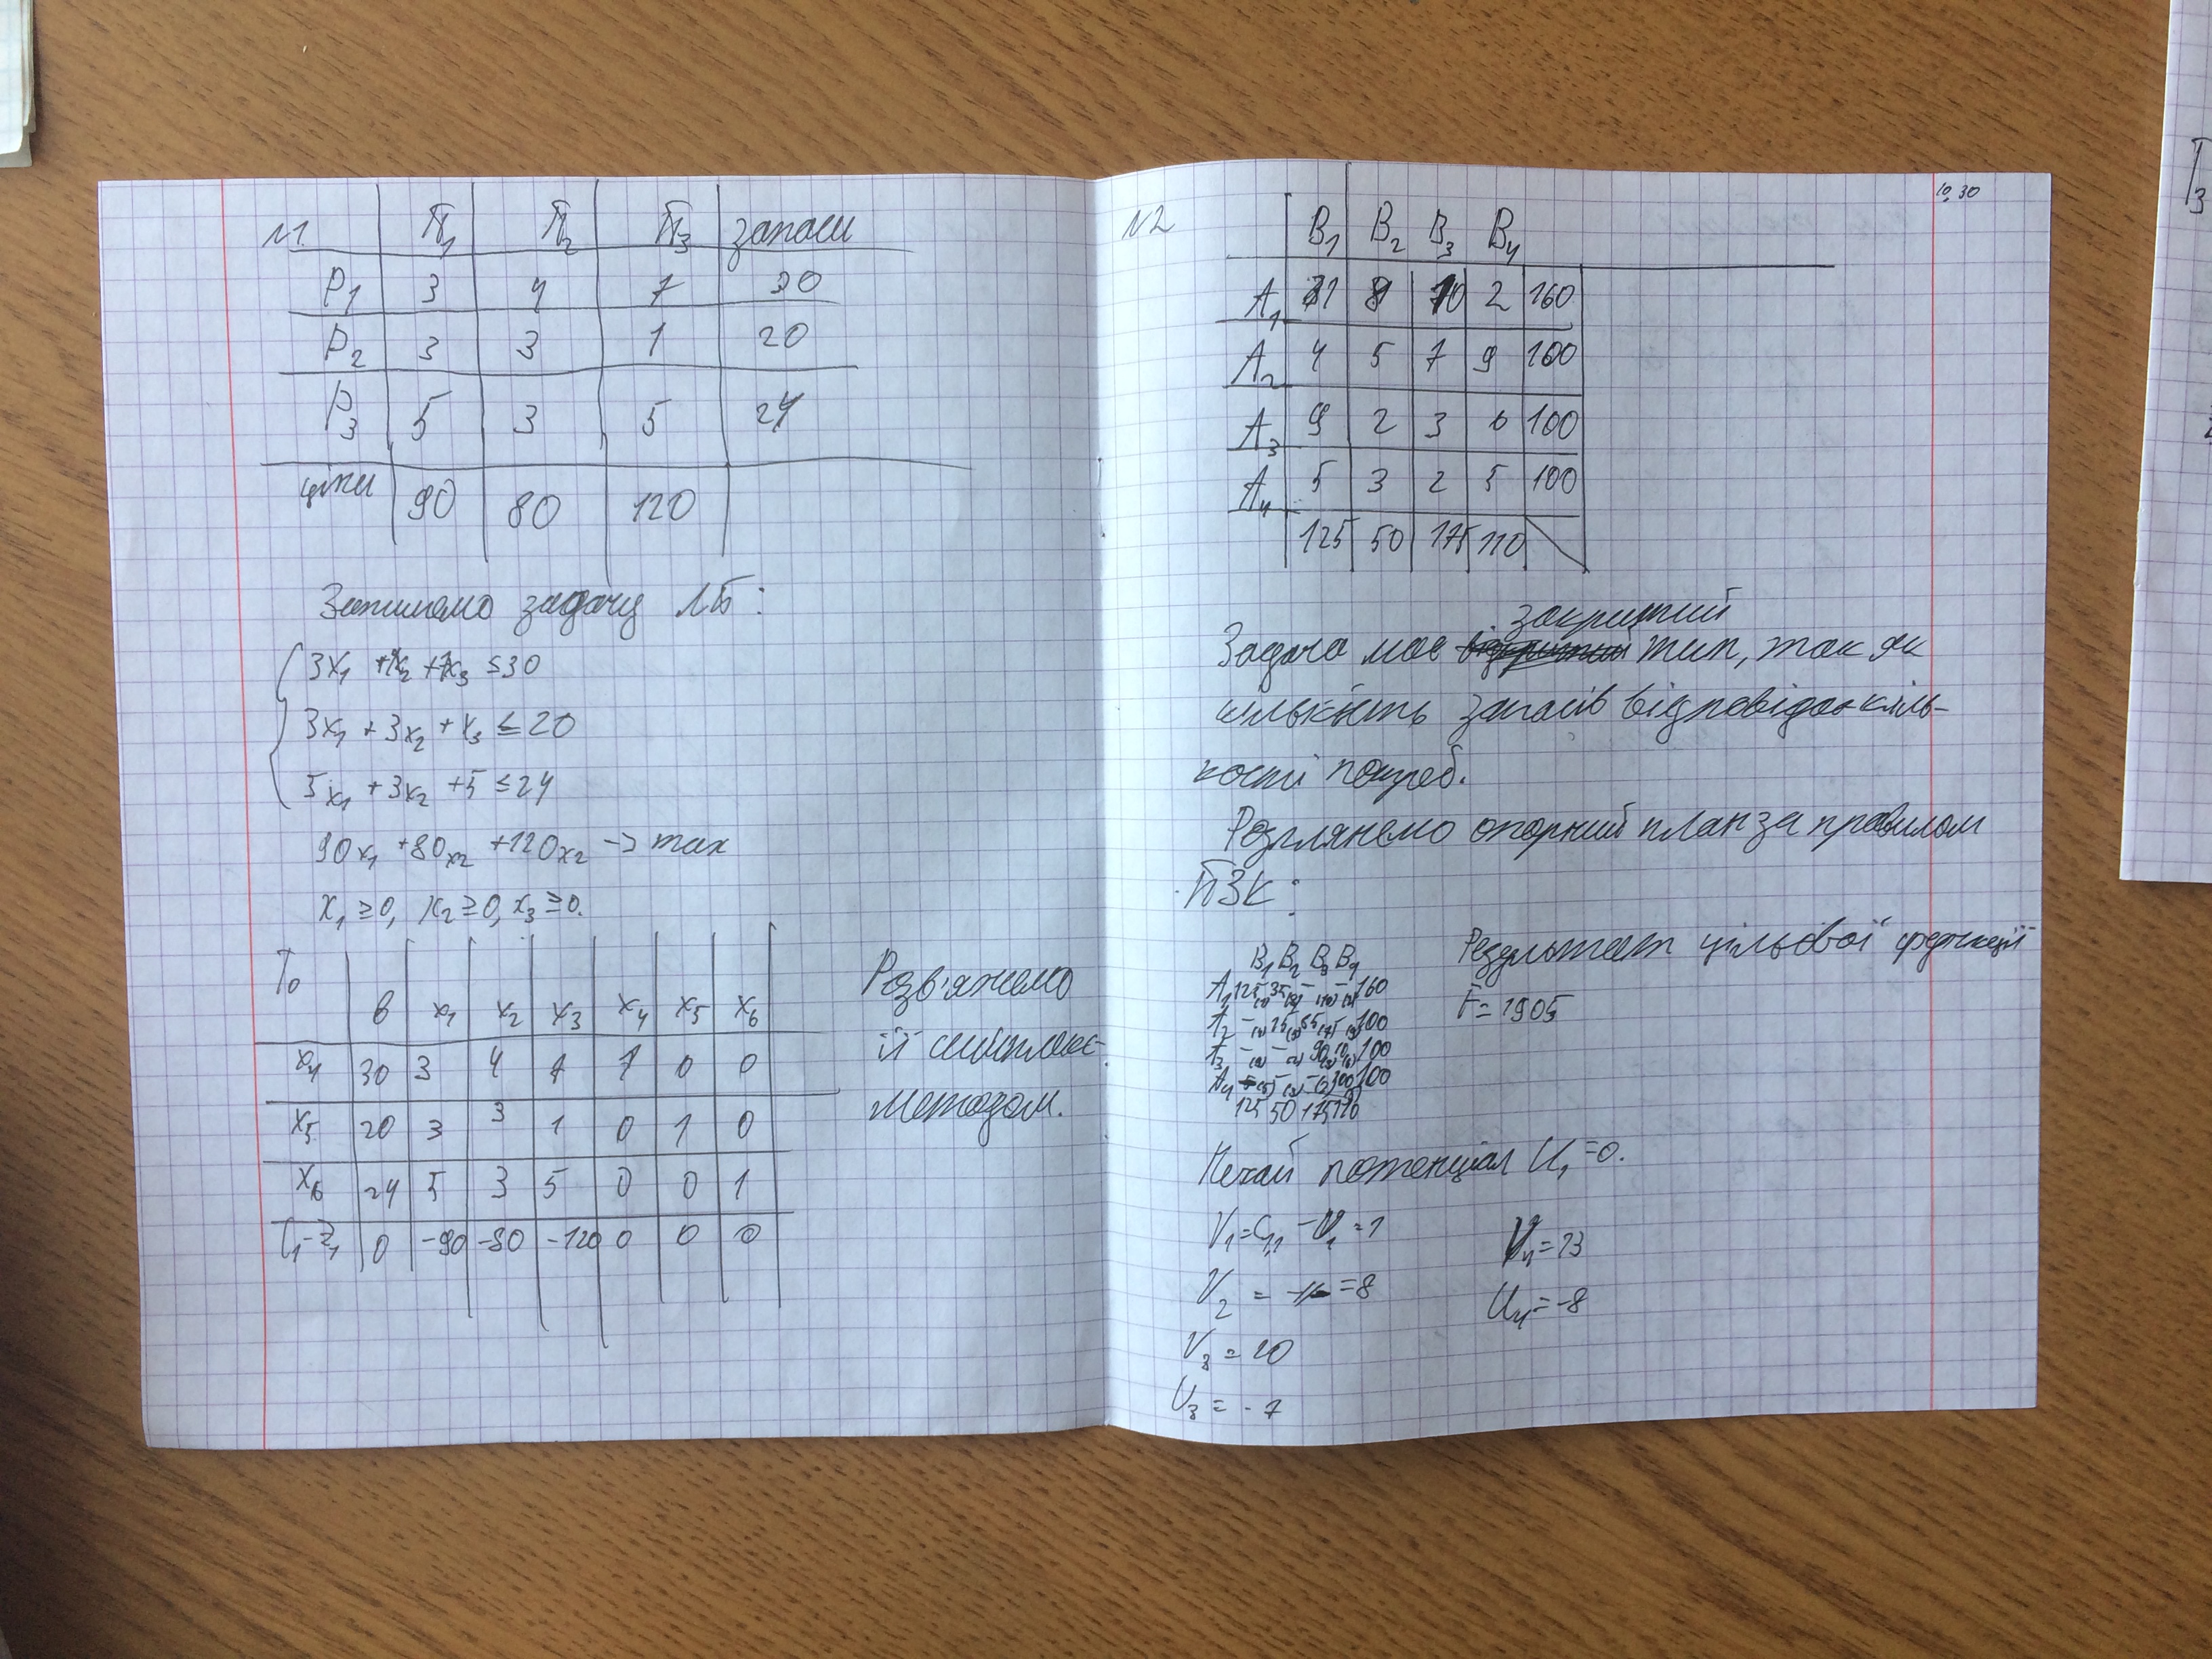 №1 П1 П2 П3 запаси
P1 3 4 7 30
P2 3 3 1 20
P3 5 3 5 24
ціни 90 80 120
Запишемо задачу ЛП:
3x1 +4x2 +7x3 ≤30
3x1 + 3x2 + x3 ≤ 20
5x1 +3x2 +5 ≤24
90x1 +80x2 +120x2 -> max
x1 ≥0, x2 ≥0, x3 ≥0.
T0 b x1 x2 x3 x4 x5 x6
x4 30 3 4 7 1 0 0
x5 20 3 3 1 0 1 0
x6 24 5 3 5 0 0 1
C1-Z1 0 -90 -80 -120 0 0 0
Розв'яжемо
її симплекс-
методом.
10.30
№2 B1 B2 B3 B4
A1 1 8 10 2 160
A2 4 5 7 9 100
A3 9 2 3 6 100
A4 5 3 2 5 100
125 50 175 110
закритий
Задача має тип, так як
кількість запасів відповідає кіль-
кості потреб.
Розглянемо опорний план за правилом
ПЗК:
B1 B2 B3 B4
A1 125 35 160
A2 100
A3 90 10 100
A4 100 100
125 50 175 110
Результат цільової функції
F=1905
Нехай потенціал U1=0.
V1=C11 -U1=1
V2 = =8
V3 = 10
U3 = -7
V4=13
U4=-8